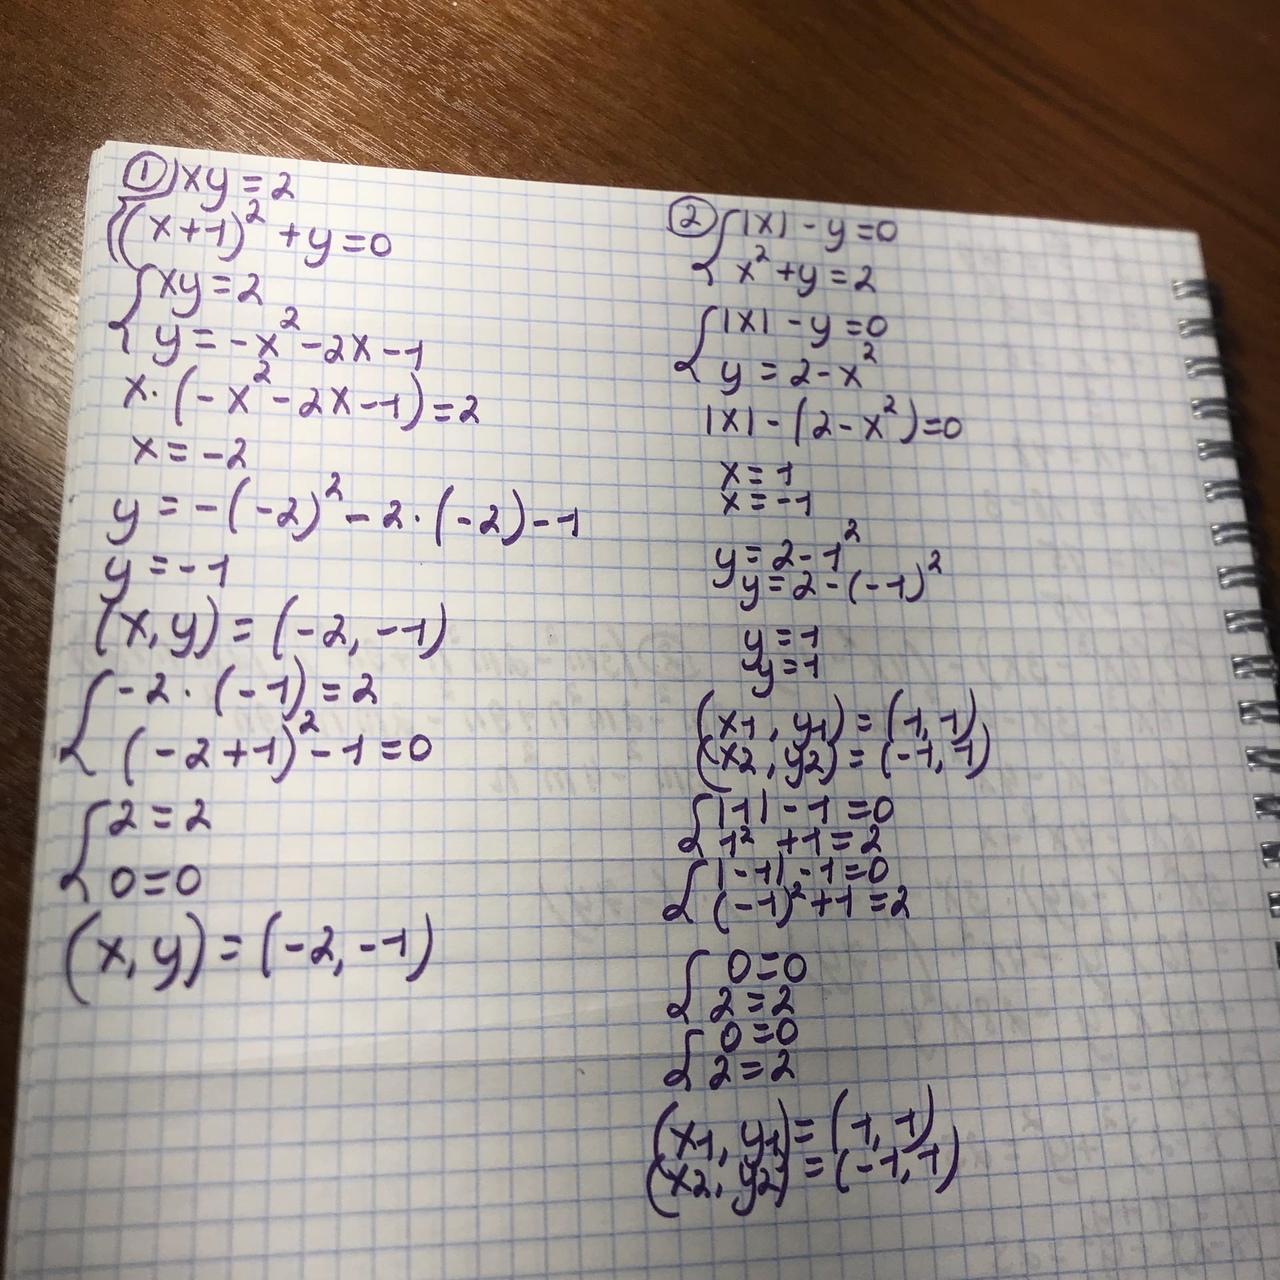 ① xy = 2
(x+1)² + y = 0
xy = 2
y = -x² - 2x - 1
x · (-x² - 2x - 1) = 2
x = -2
y = -(-2)² - 2 · (-2) - 1
y = -1
(x, y) = (-2, -1)
-2 · (-1) = 2
(-2+1)² - 1 = 0
2 = 2
0 = 0
(x, y) = (-2, -1)
② |x| - y = 0
x² + y = 2
|x| - y = 0
y = 2 - x²
|x| - (2 - x²) = 0
x = 1
x = -1
y = 2 - 1²
y = 2 - (-1)²
y = 1
y = 1
(x1, y1) = (1, 1)
(x2, y2) = (-1, 1)
|1| - 1 = 0
1² + 1 = 2
|-1| - 1 = 0
(-1)² + 1 = 2
0 = 0
2 = 2
0 = 0
2 = 2
(x1, y1) = (1, 1)
(x2, y2) = (-1, 1)